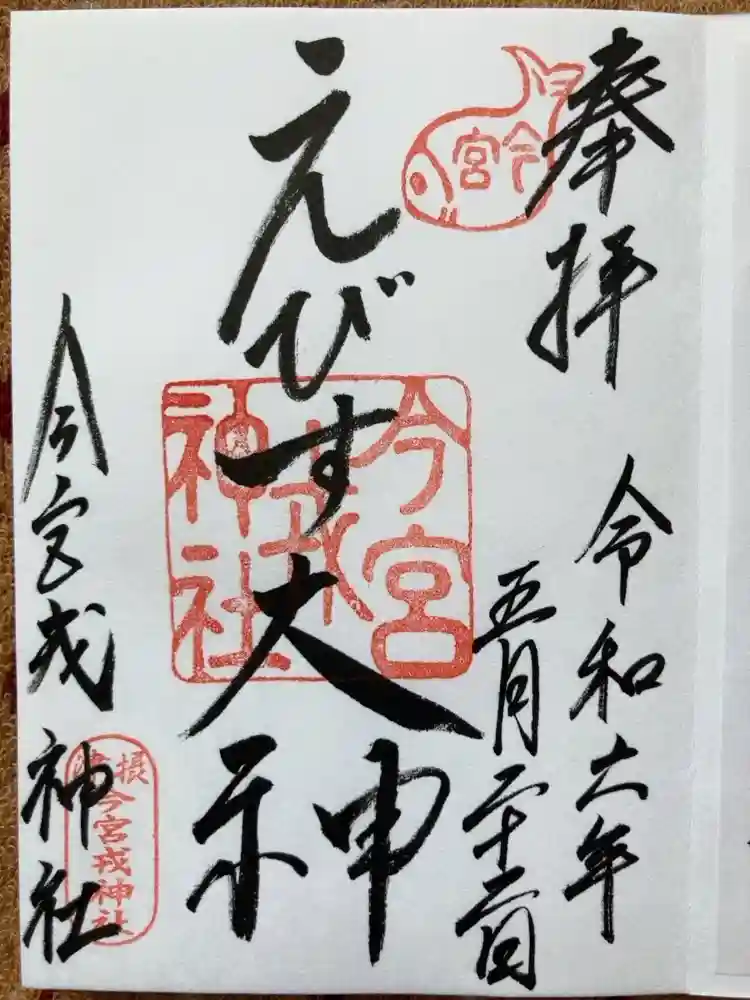 奉拝
令和六年
五月二十二日
今宮
えびす大神
今宮
戎
神社
今宮戎神社
摂津
今宮戎神社